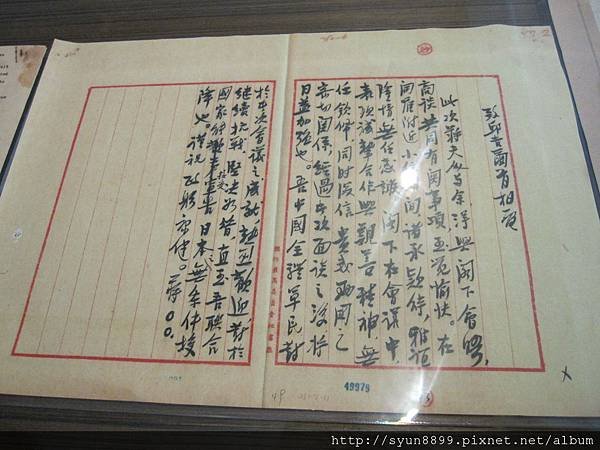 致邱吉爾首相電
此次蔣夫人與余得與閣下會晤,
商談共同有關事項至覺愉快。在
開羅附近小住期間諸承款待,雅誼
隆情無任感謝 閣下在會議中
表現誠摯合作與親善精神,無
任欽佩同時深信 貴我兩國之
密切關係經過此次面談之後將
日益加強也。吾中國全體軍民對
於此次會議之成就熱烈歡迎對於
繼續抗戰堅決如昔,直至吾聯合
國家 接受 日本無條件投
降也。謹祝 政躬康健。蔣〇〇
49979
http://syun8899.pixnet.net/album